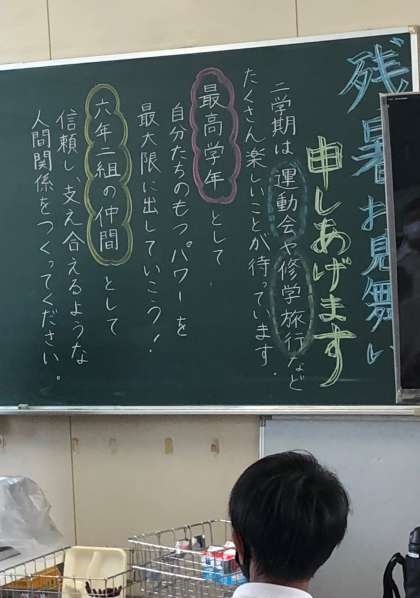 残暑お見舞い
申しあげます
二学期は運動会や修学旅行など
たくさん楽しいことが待っています.
最高学年として、
自分たちのもつパワーを
最大限に出していこう!
六年二組の仲間として
信頼し、支え合えるような
人間関係をつくってください。